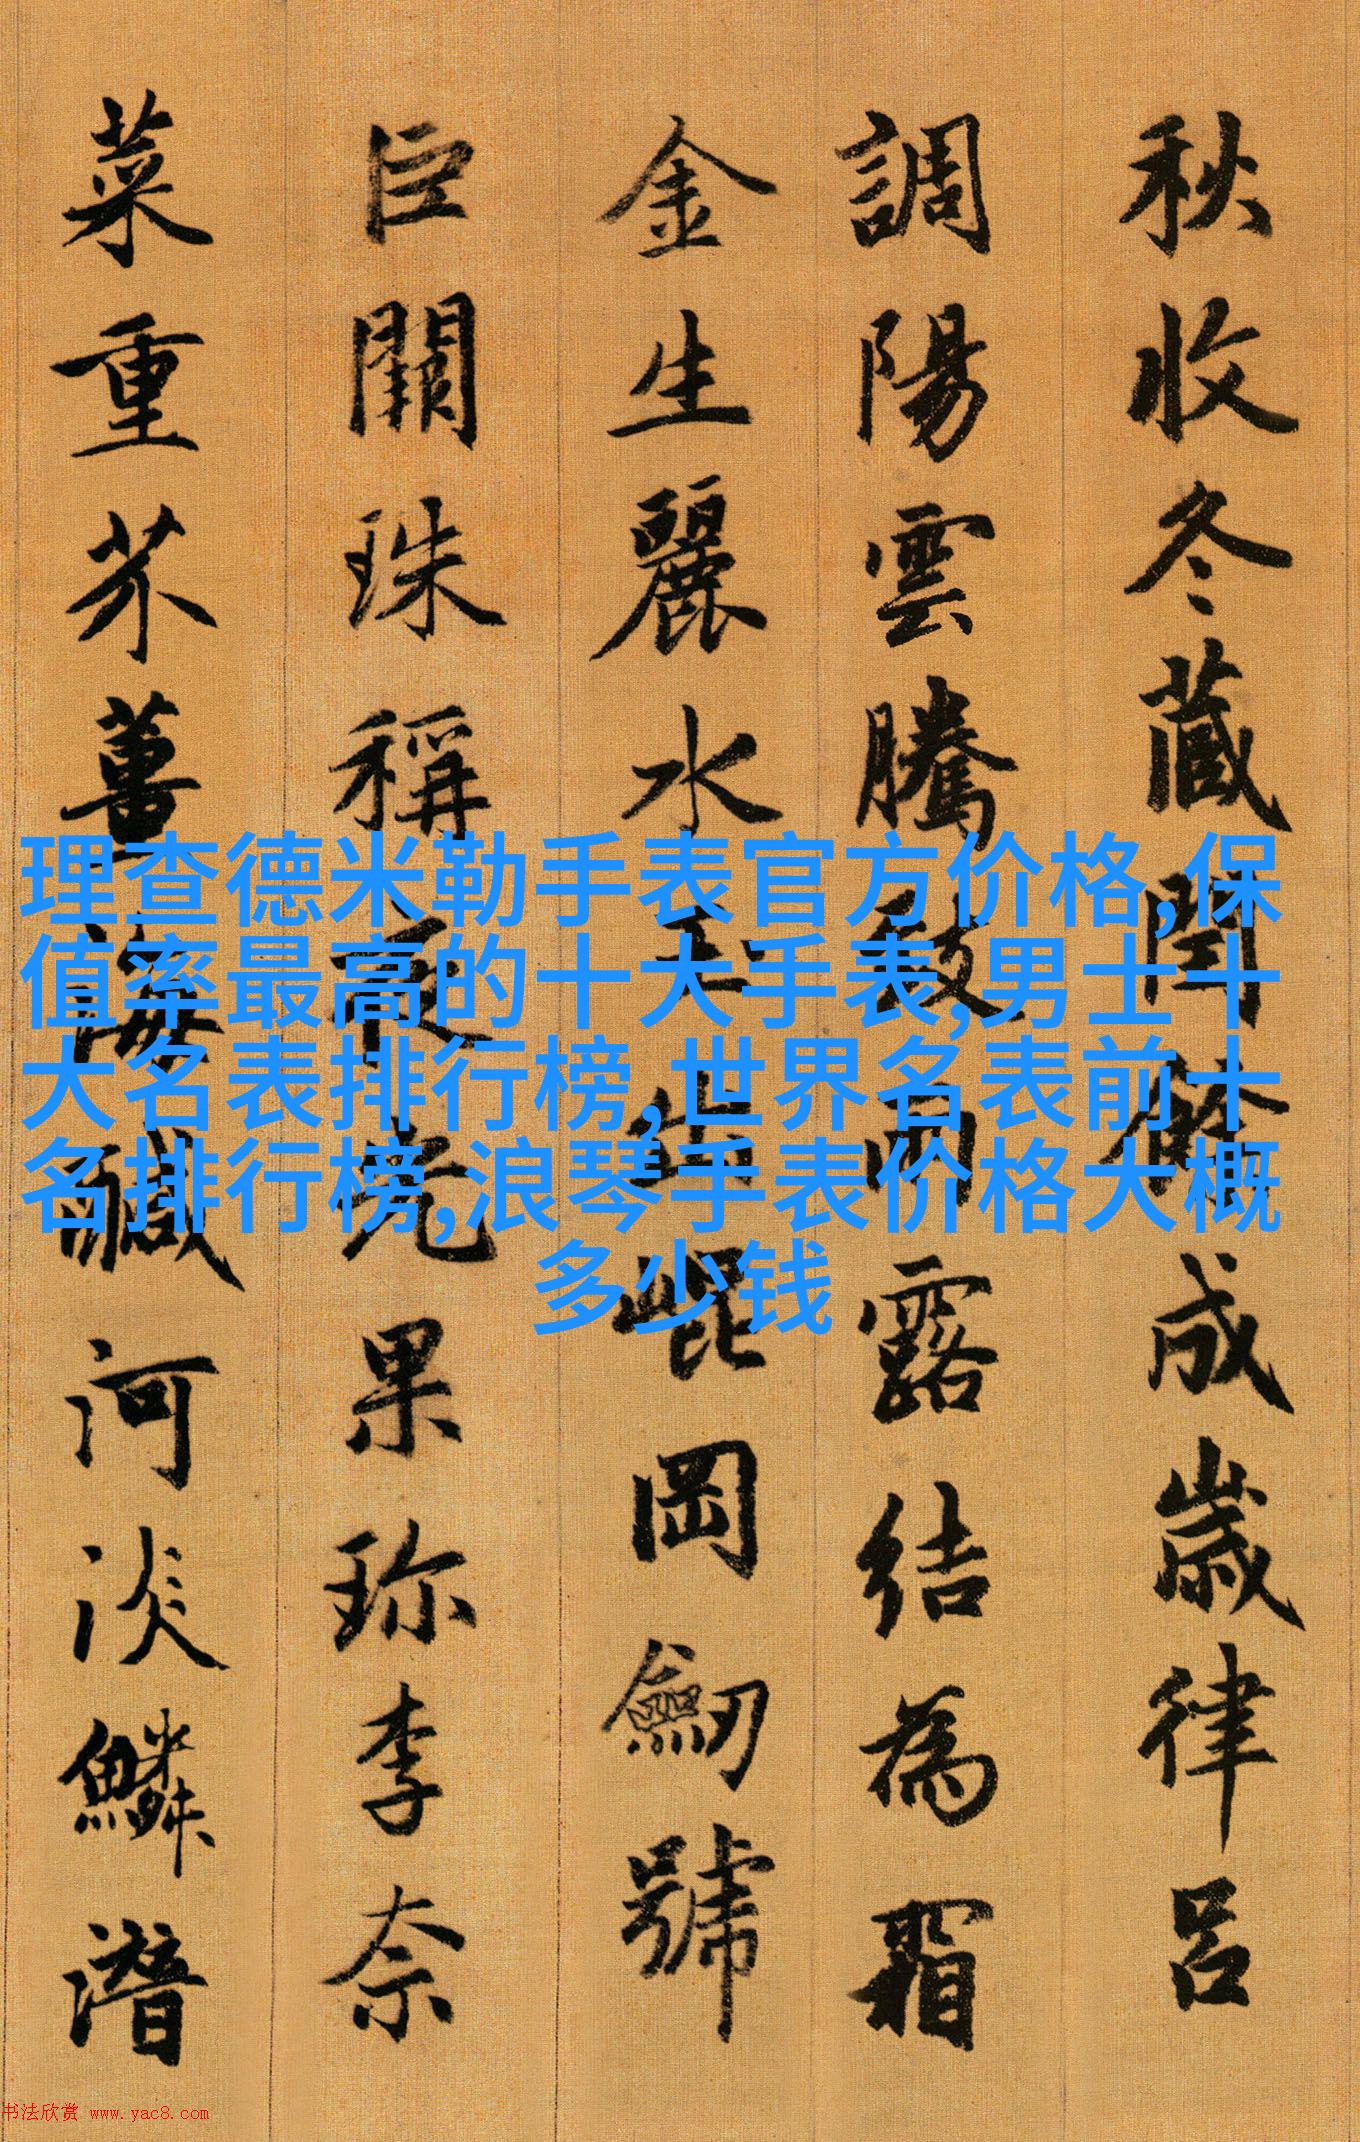 秋收冬藏閏餘成歲律呂
調陽雲騰致雨露結為霜
金生麗水玉出崐岡劒號
巨闕珠稱夜光果珎李奈
菜重芥薑海鹹河淡鱗潛
理查德米勒手表官方价格,保
值率最高的十大手表,男士十
大名表排行榜,世界名表前十
名排行榜,浪琴手表价格大概
多少钱
书法欣赏 www.yac8.com